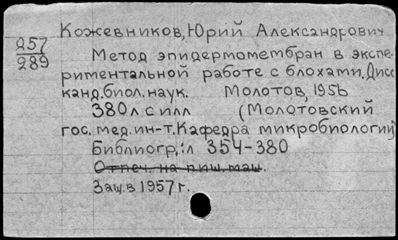 Кожевников, Юрий Александрович
257
289
Метод эпидермомембран в экспе-
риментальной работе с блохами. Дисс
канд. биол. наук. Молотов, 1956
380 л. с илл (Молотовский
гос. мед. ин-т. Кафедра микробиологии)
Библиогр.: л 354-380
Отпеч. на пиш. маш.
Защ. в 1957 г.